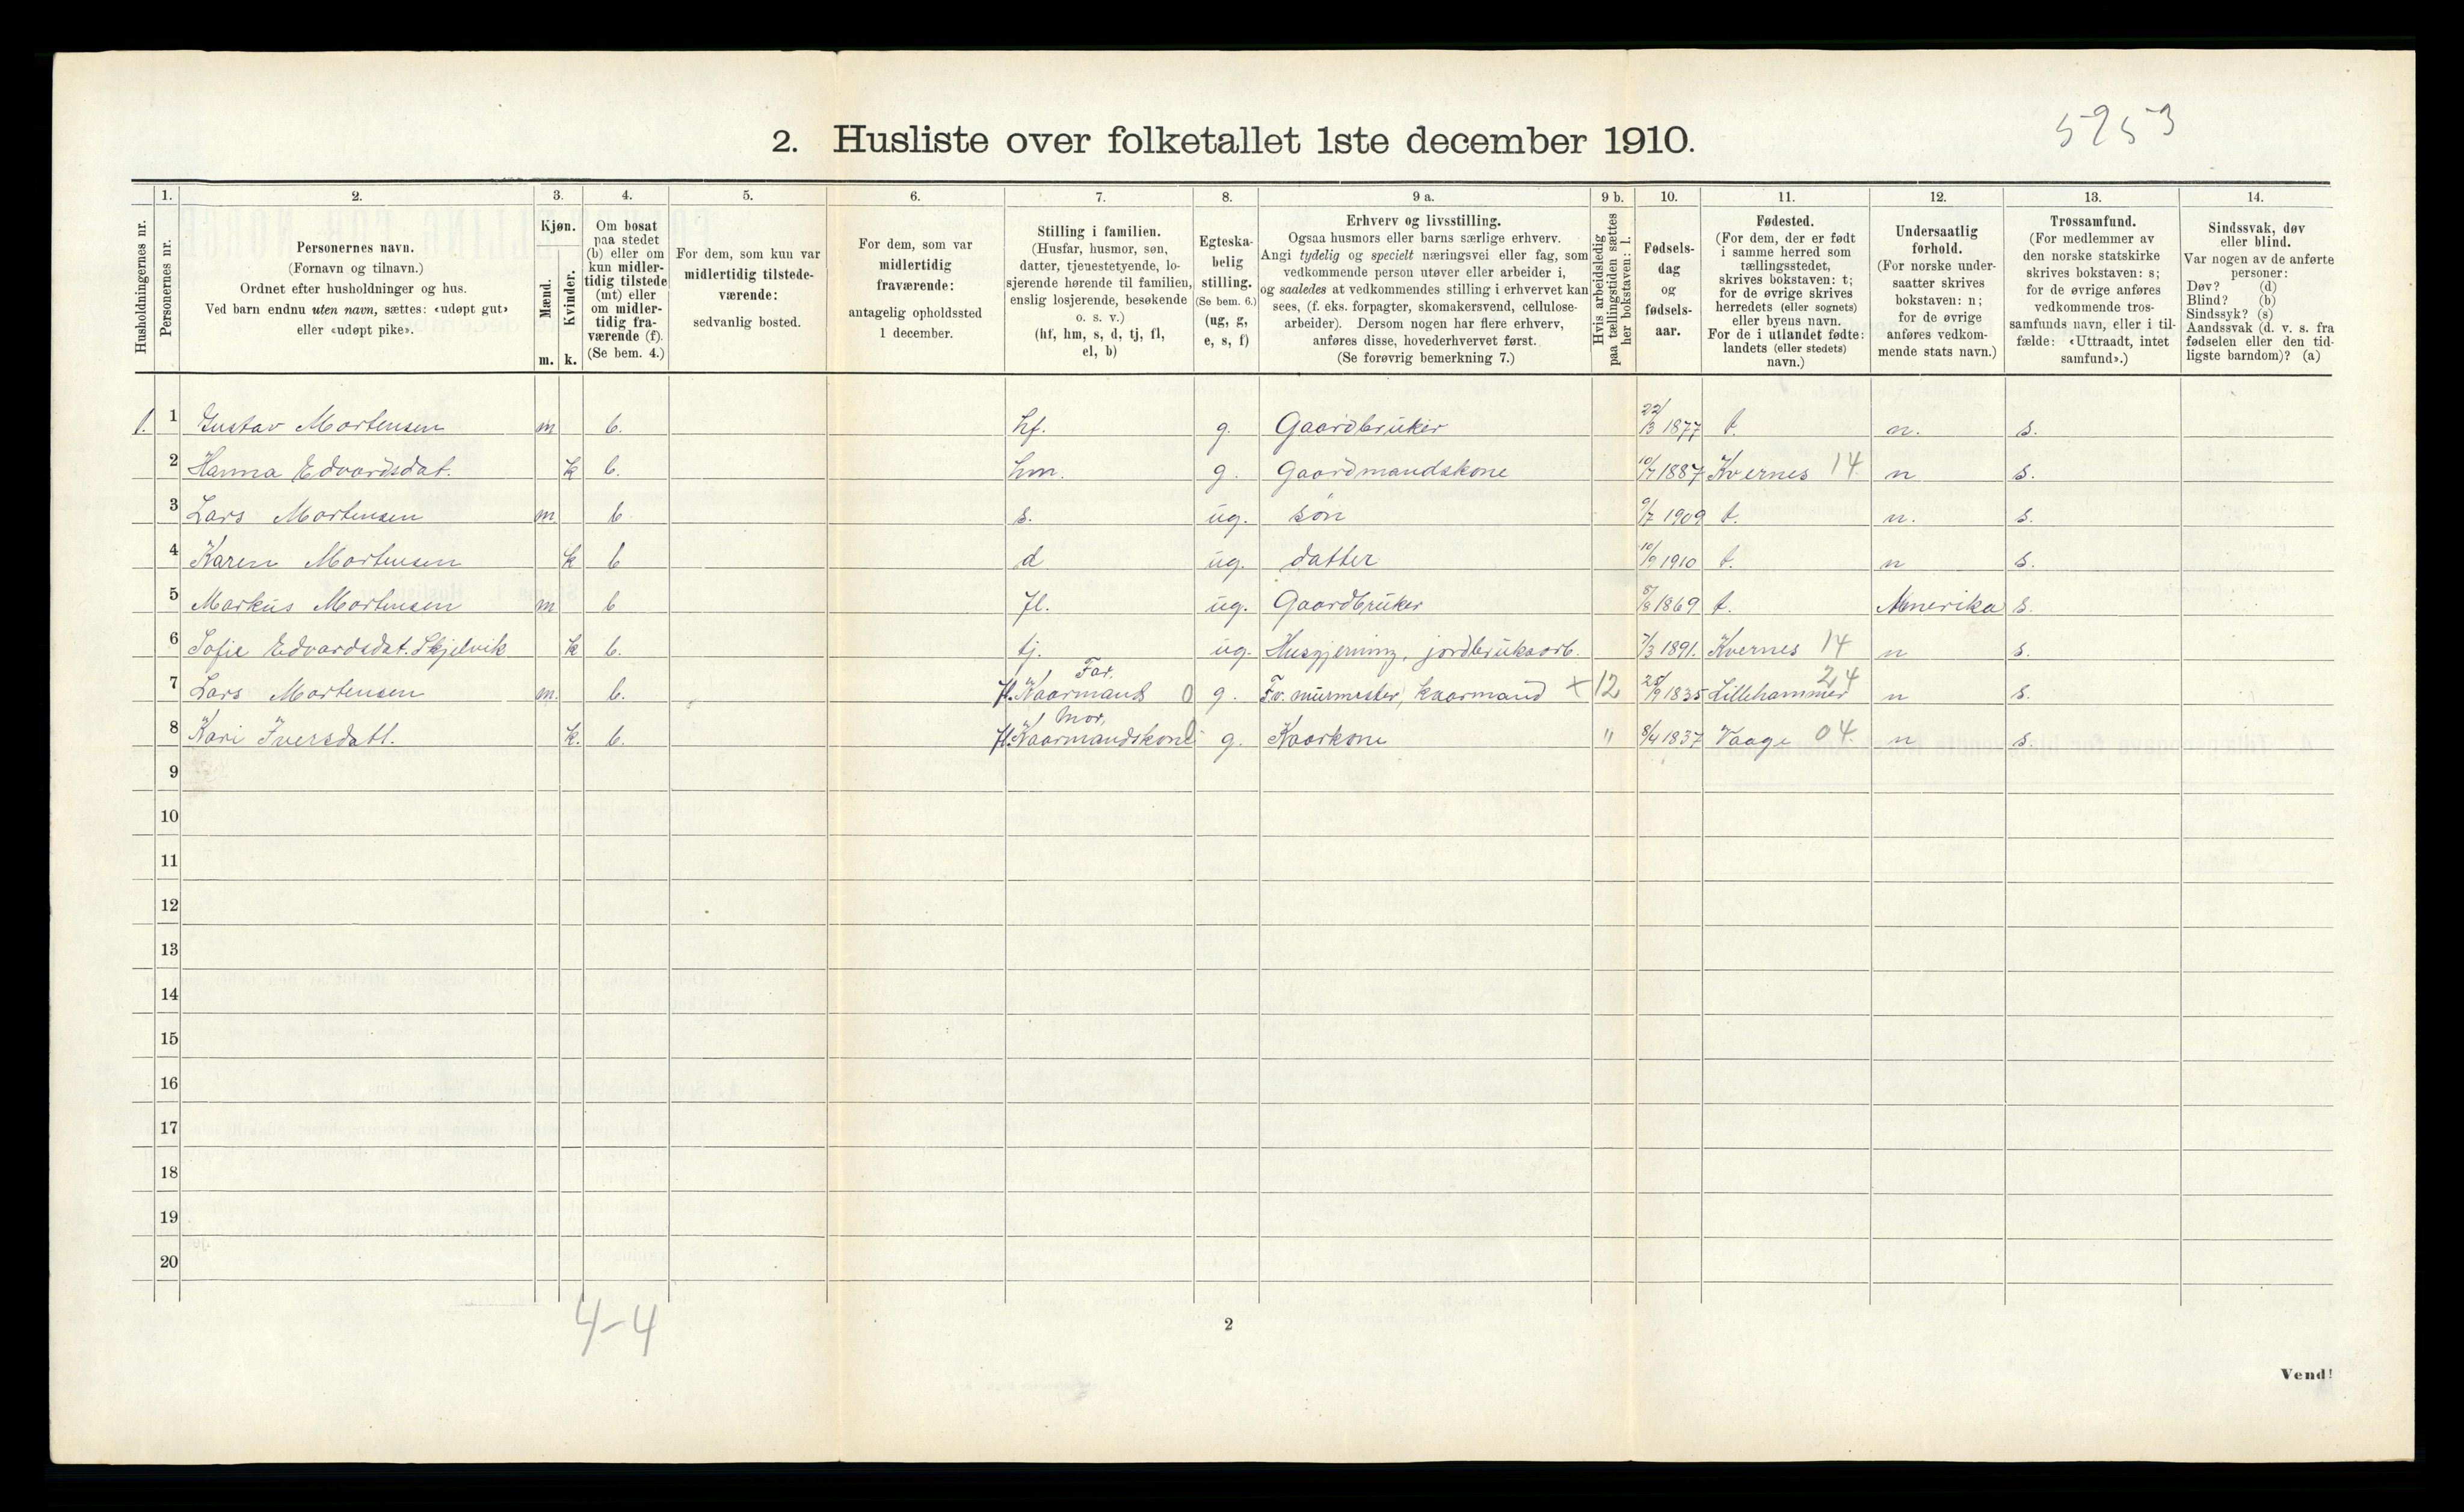 5953
2. Husliste over folketallet 1ste december 1910.
1. 2. 3. 4. 5. 6. 7. 8. 9 a. 9 b. 10. 11. 12. 13. 14.
Husholdningernes nr.
Personernes nr.
Personernes navn.
(Fornavn og tilnavn.)
Ordnet efter husholdninger og hus.
Ved barn endnu uten navn, sættes: «udøpt gut»
eller «udøpt pike».
Kjøn.
Mænd.
Kvinder.
m. k.
Om bosat
paa stedet
(b) eller om
kun midler-
tidig tilstede
(mt) eller
om midler-
tidig fra-
værende (f).
(Se bem. 4.)
For dem, som kun var
midlertidig tilstede-
værende:
sedvanlig bosted.
For dem, som var
midlertidig
fraværende:
antagelig opholdssted
1 december.
Stilling i familien.
(Husfar, husmor, søn,
datter, tjenestetyende, lo-
sjerende hørende til familien,
enslig losjerende, besøkende
o. s. v.)
(hf, hm, s, d, tj, fl,
el, b)
Egteska-
belig
stilling.
(Se bem. 6.)
(ug, g,
e, s, f)
Erhverv og livsstilling.
Ogsaa husmors eller barns særlige erhverv.
Angi tydelig og specielt næringsvei eller fag, som
vedkommende person utøver eller arbeider i,
og saaledes at vedkommendes stilling i erhvervet kan
sees, (f. eks. forpagter, skomakersvend, cellulose-
arbeider). Dersom nogen har flere erhverv,
anføres disse, hovederhvervet først.
(Se forøvrig bemerkning 7.)
Hvis arbeidsledig
paa tællingstiden sættes
her bokstaven: l.
Fødsels-
dag
og
fødsels-
aar.
Fødested.
(For dem, der er født
i samme herred som
tællingsstedet,
skrives bokstaven: t;
for de øvrige skrives
herredets (eller sognets)
eller byens navn.
For de i utlandet fødte:
landets (eller stedets)
navn.)
Undersaatlig
forhold.
(For norske under-
saatter skrives
bokstaven: n;
for de øvrige
anføres vedkom-
mende stats navn.)
Trossamfund.
(For medlemmer av
den norske statskirke
skrives bokstaven: s;
for de øvrige anføres
vedkommende tros-
samfunds navn, eller i til-
fælde: «Uttraadt, intet
samfund».)
Sindssvak, døv
eller blind.
Var nogen av de anførte
personer:
Døv? (d)
Blind? (b)
Sindssyk? (s)
Aandssvak (d. v. s. fra
fødselen eller den tid-
ligste barndom)? (a)
1. 1 Gustav Mortensen m b. hf. g. Gaardbruker 22/3 1877 t. n. s.
2 Hanna Edvardsdat. k b. hm. g. Gaardmandskone 10/7 1887 Kvernes 14 n s.
3 Lars Mortensen m b s. ug. søn 9/7 1909 t. n. s.
4 Karen Mortensen k b d ug. datter 10/9 1910 t. n s.
5 Markus Mortensen m b fl. ug. Gaardbruker 8/8 1869 t. Amerika s.
6 Sofie Edvardsdat. Skjelvik k b. tj. ug. Husgjerning, jordbruksarb. 7/3 1891. Kvernes 14 n s.
7 Lars Mortensen m. b. fl. Kaarmand Far, 0 g. Fv. murmester, kaarmand × 12 25/9 1835 Lillehammer 24 n s.
8 Kari Iversdatt. k. b. fl. Kaarmandskone Mor, 0 g. Kaarkone " 8/4 1837 Vaage 04. n s.
9
10
11
12
13
14
15
16
17
18
19
20
4-4
2
Vend!